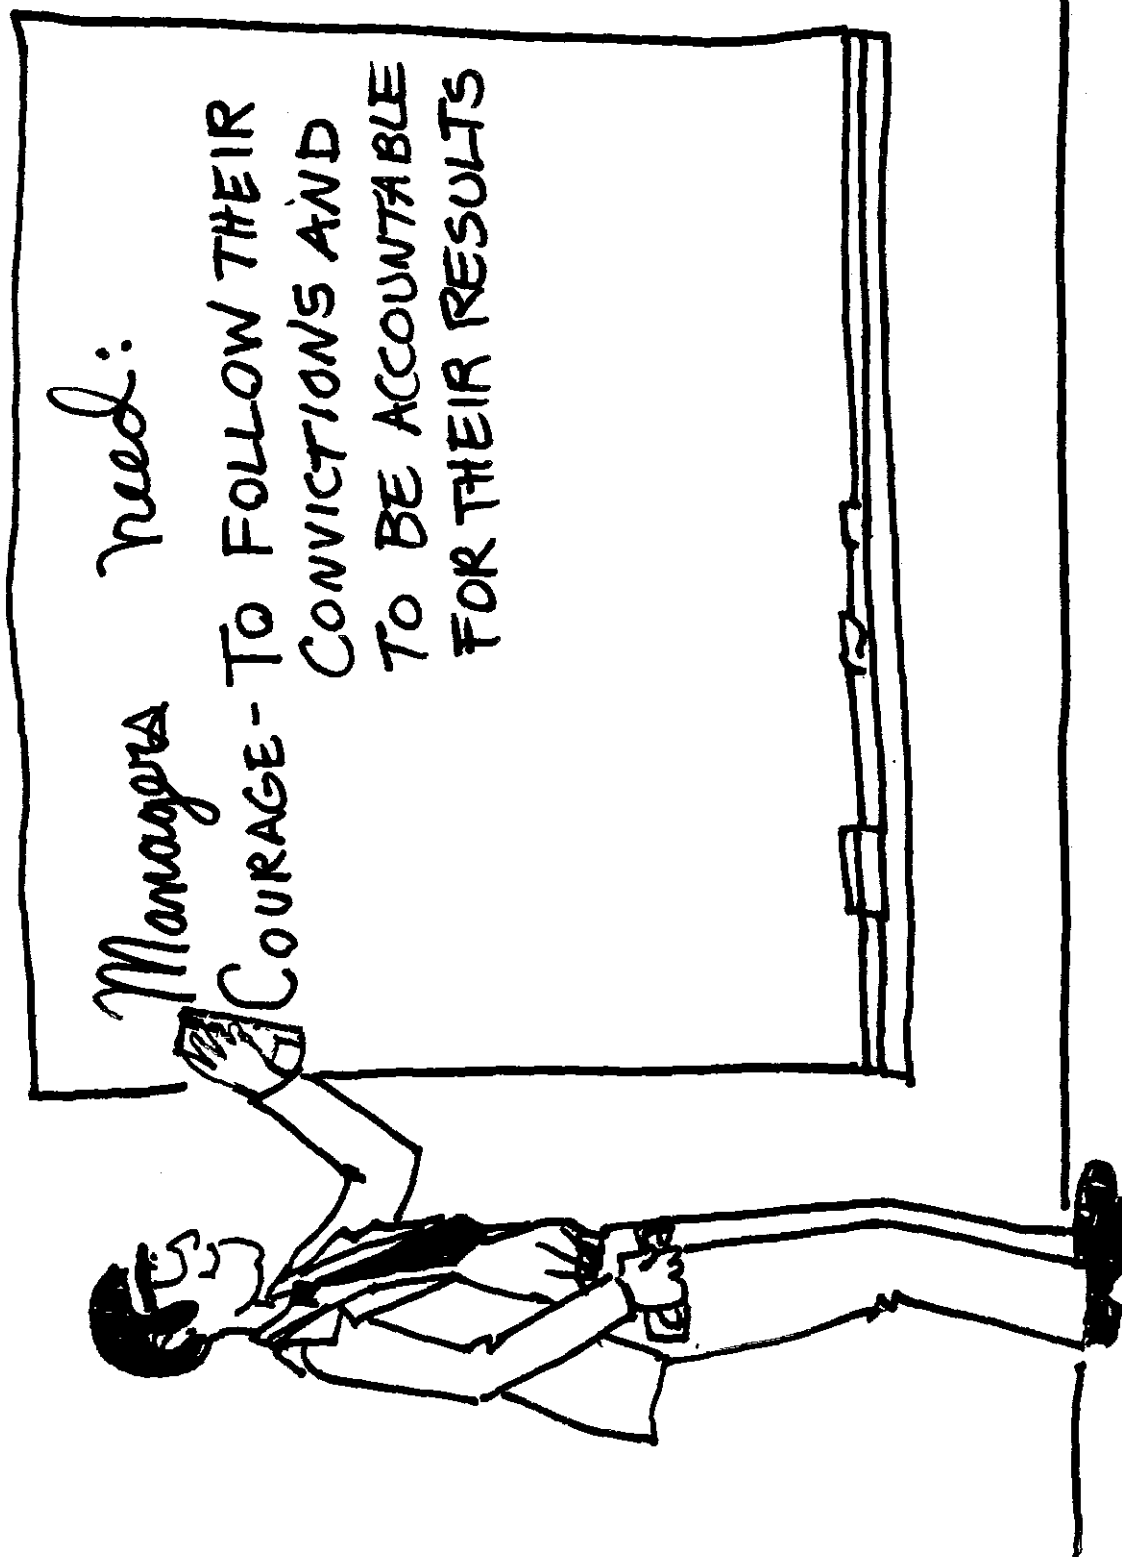 Managers need:
COURAGE - TO FOLLOW THEIR
CONVICTIONS AND
TO BE ACCOUNTABLE
FOR THEIR RESULTS